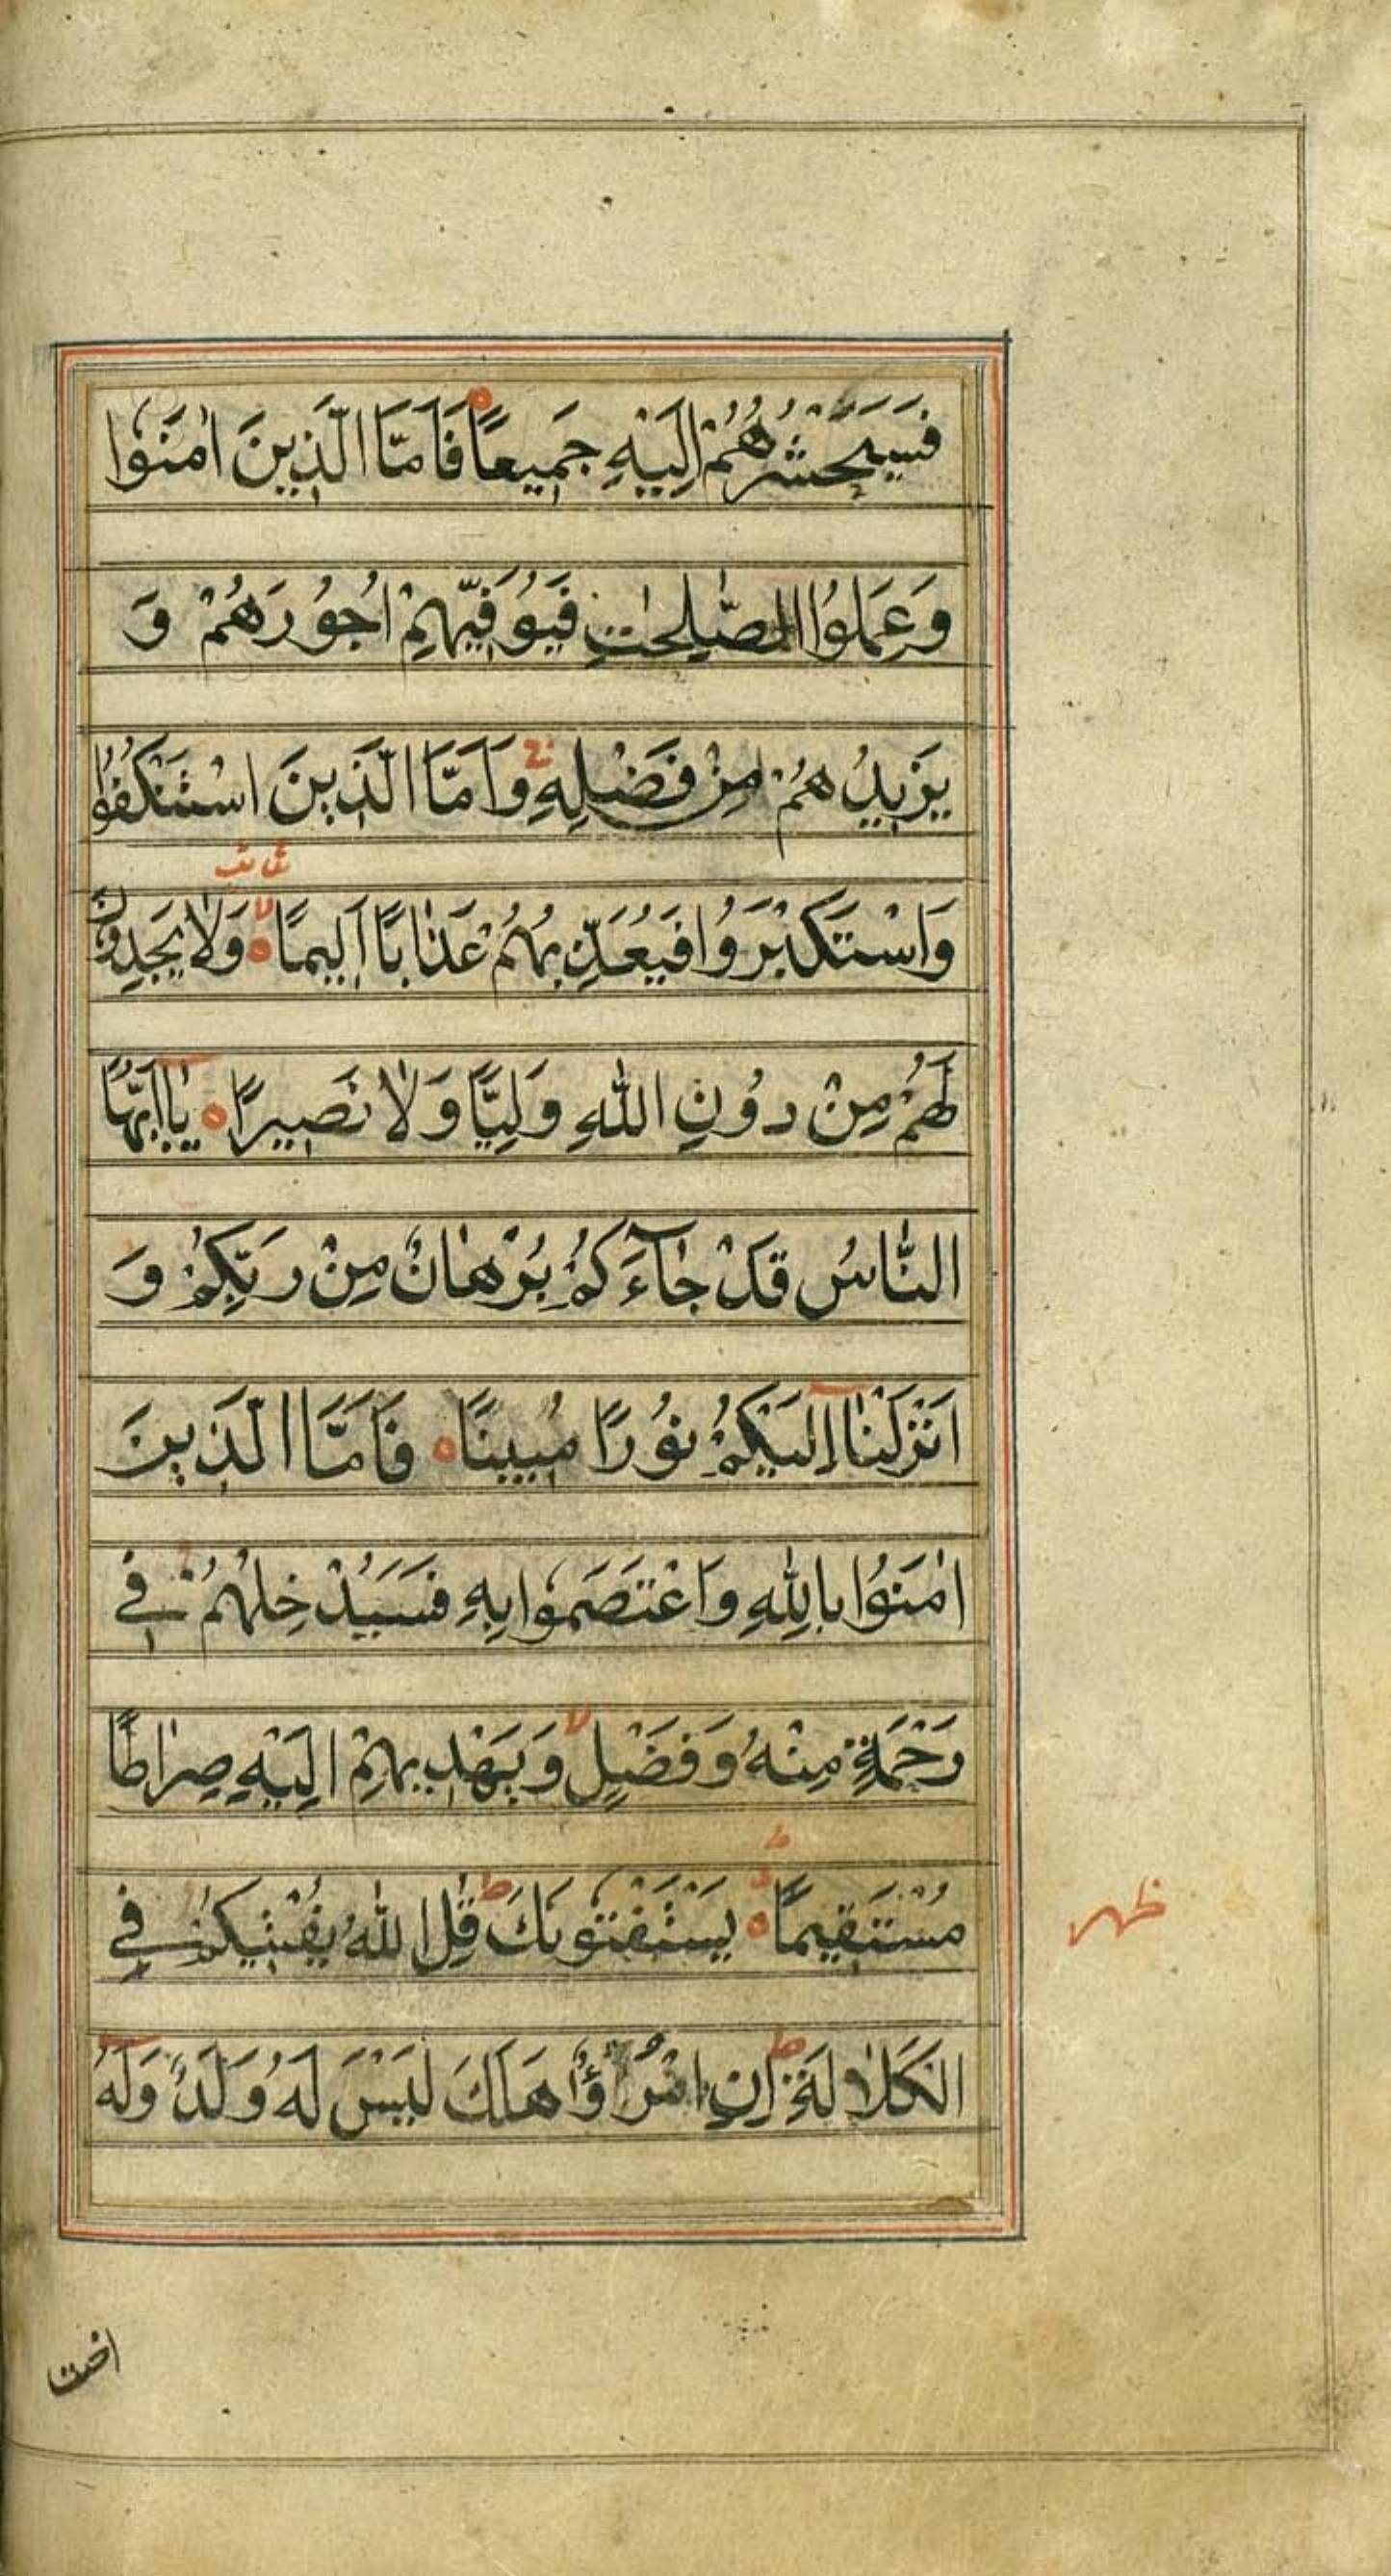 فَسَيَحْشُرُهُمْ اِلَيْهِ جَمِيعًا فَاَمَّا الَّذِينَ اٰمَنُوا
وَعَمِلُوا الصّٰلِحٰتِ فَيُوَفِّيهِمْ اُجُورَهُمْ وَ
يَزِيدُهُمْ مِنْ فَضْلِهِ وَاَمَّا الَّذِينَ اسْتَنْكَفُوا
وَاسْتَكْبَرُوا فَيُعَذِّبُهُمْ عَذَابًا اَلِيمًا وَلَا يَجِدُونَ
لَهُمْ مِنْ دُونِ اللّٰهِ وَلِيًّا وَلَا نَصِيرًا يَا اَيُّهَا
النَّاسُ قَدْ جَآءَكُمْ بُرْهَانٌ مِنْ رَبِّكُمْ وَ
اَنْزَلْنَا اِلَيْكُمْ نُورًا مُبِينًا فَاَمَّا الَّذِينَ
اٰمَنُوا بِاللّٰهِ وَاعْتَصَمُوا بِهِ فَسَيُدْخِلُهُمْ فِي
رَحْمَةٍ مِنْهُ وَفَضْلٍ وَيَهْدِيهِمْ اِلَيْهِ صِرَاطًا
مُسْتَقِيمًا يَسْتَفْتُونَكَ قُلِ اللّٰهُ يُفْتِيكُمْ فِي
الْكَلَالَةِ اِنِ امْرُؤٌا هَلَكَ لَيْسَ لَهُ وَلَدٌ وَلَهُ
اخت